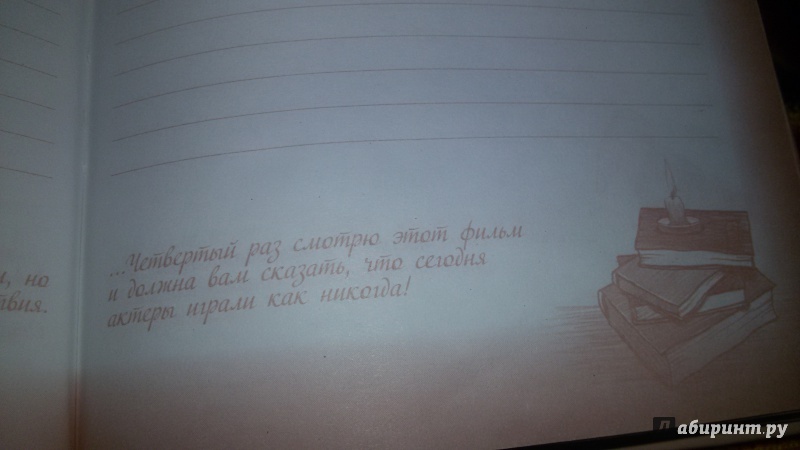 ...Четвертый раз смотрю этот фильм
и должна вам сказать, что сегодня
актеры играли как никогда!
, но
твия.
Лабиринт.ру